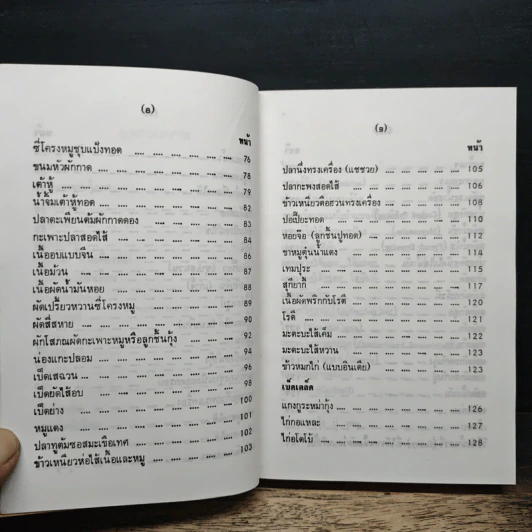 (๑)
หน้า
ซี่โครงหมูชุบแป้งทอด .... .... .... .... .... .... 76
ขนมหัวผักกาด .... .... .... .... .... .... 78
เต้าหู้ .... .... .... .... .... .... 79
น้ำจิ้มเต้าหู้ทอด .... .... .... .... .... 82
ปลาตะเพียนต้มผักกาดดอง .... .... .... .... 83
กะเพาะปลาสอดไส้ .... .... .... .... .... 84
เนื้ออบแบบจีน .... .... .... .... .... 86
เนื้อม้วน .... .... .... .... .... .... 87
เนื้อผัดน้ำมันหอย .... .... .... .... 88
ผัดเปรี้ยวหวานซี่โครงหมู .... .... .... .... 89
ผัดสี่สหาย .... .... .... .... .... 90
ผักโสภณผัดกะเพาะหมูหรือลูกชิ้นกุ้ง .... .... 92
น่องแกะปลอม .... .... .... .... .... 94
เป็ดเสฉวน .... .... .... .... .... 96
เป็ดยัดไส้อบ .... .... .... .... .... 98
เป็ดย่าง .... .... .... .... .... 100
หมูแดง .... .... .... .... .... 101
ปลาทูต้มซอสมะเขือเทศ .... .... .... .... 102
ข้าวเหนียวห่อไส้เนื้อและหมู .... .... .... .... 103
หน้า
ปลานึ่งทรงเครื่อง (แซชวย) .... .... .... .... 105
ปลากะพงสอดไส้ .... .... .... .... .... 106
ข้าวเหนียวคือฮวนทรงเครื่อง .... .... .... .... 108
ปอเปี๊ยะทอด .... .... .... .... .... 110
หอยจ๊อ (ลูกชิ้นปูทอด) .... .... .... .... 112
ขาหมูตุ๋นน้ำแดง .... .... .... .... .... 114
เทมปุระ .... .... .... .... .... 115
สุกียากี้ .... .... .... .... .... 117
เนื้อผัดพริกกับโรตี .... .... .... .... 120
โรตี .... .... .... .... .... 121
มะตะบะไส้เค็ม .... .... .... .... .... 122
มะตะบะไส้หวาน .... .... .... .... .... 123
ข้าวหมกไก่ (แบบอินเดีย) .... .... .... .... 123
เบ็ดเตล็ด
แกงกูระหม่ากุ้ง .... .... .... .... .... 126
ไก่กอและ .... .... .... .... .... 127
ไก่อโดโบ้ .... .... .... .... .... 128